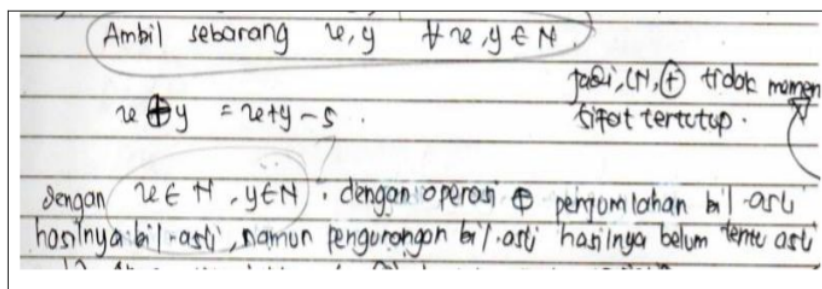 Ambil sebarang x, y ∀ x, y ∈ N.
x ⊕ y = x+y - 5.
Jadi, (N, ⊕) tidak memen
sifat tertutup.
dengan x ∈ N, y ∈ N. dengan operasi ⊕ penjumlahan bil. asli
hasilnya bil. asli, namun pengurangan bil. asli hasilnya belum tentu asli